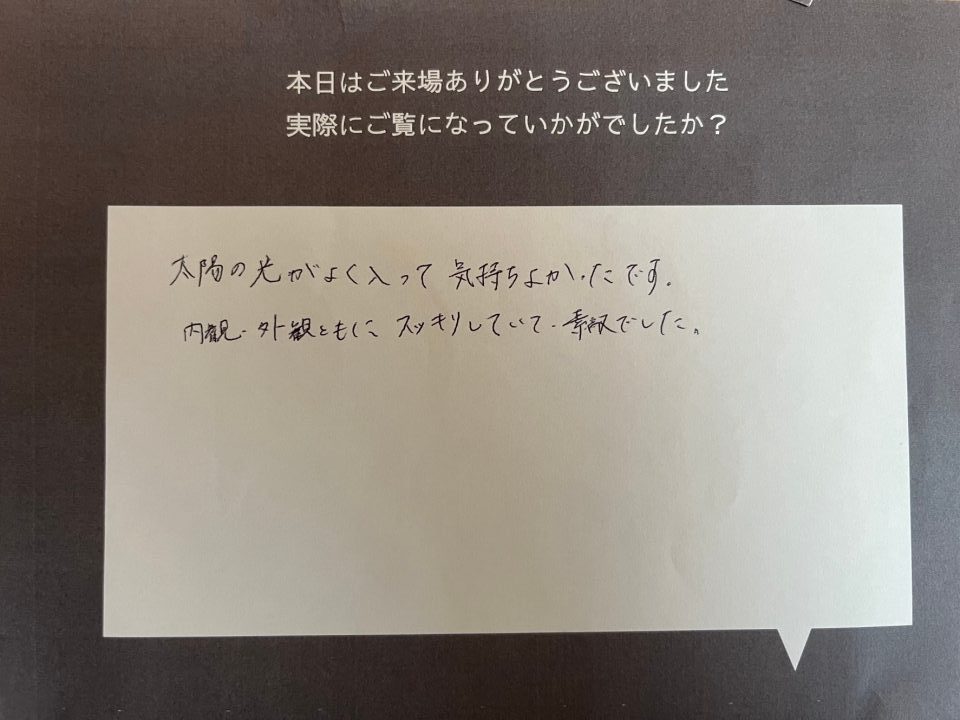 本日はご来場ありがとうございました
実際にご覧になっていかがでしたか？
太陽の光がよく入って気持ちよかったです。
内観・外観ともに スッキリしていて、素敵でした。